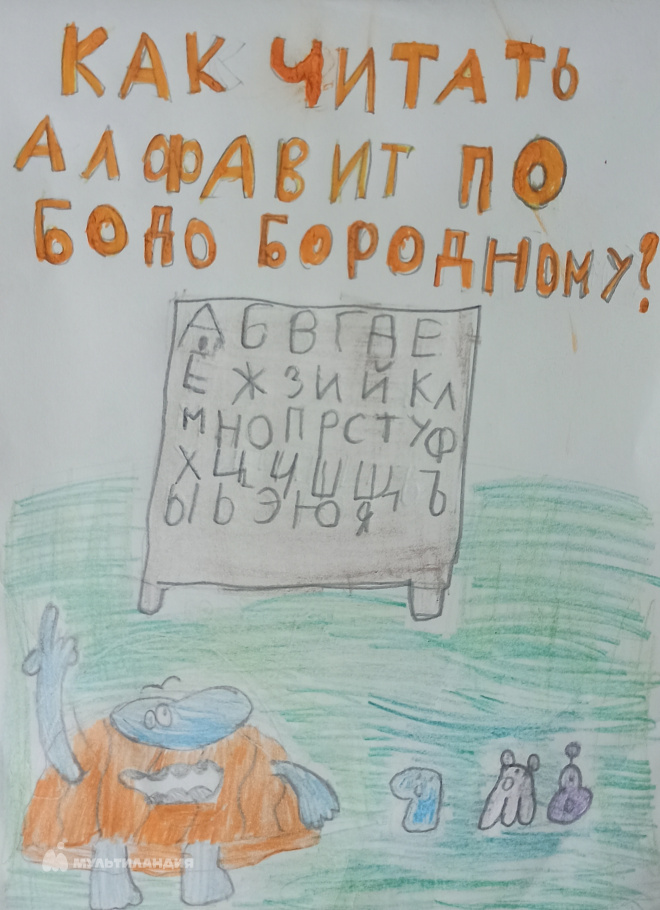 КАК ЧИТАТЬ
АЛФАВИТ ПО
БОДО БОРОДНОМУ?
А Б В Г Д Е
Ё Ж З И Й К Л
М Н О П Р С Т У Ф
Х Ц Ч Ш Щ Ъ
Ы Ь Э Ю Я
МУЛЬТИЛАНДИЯ